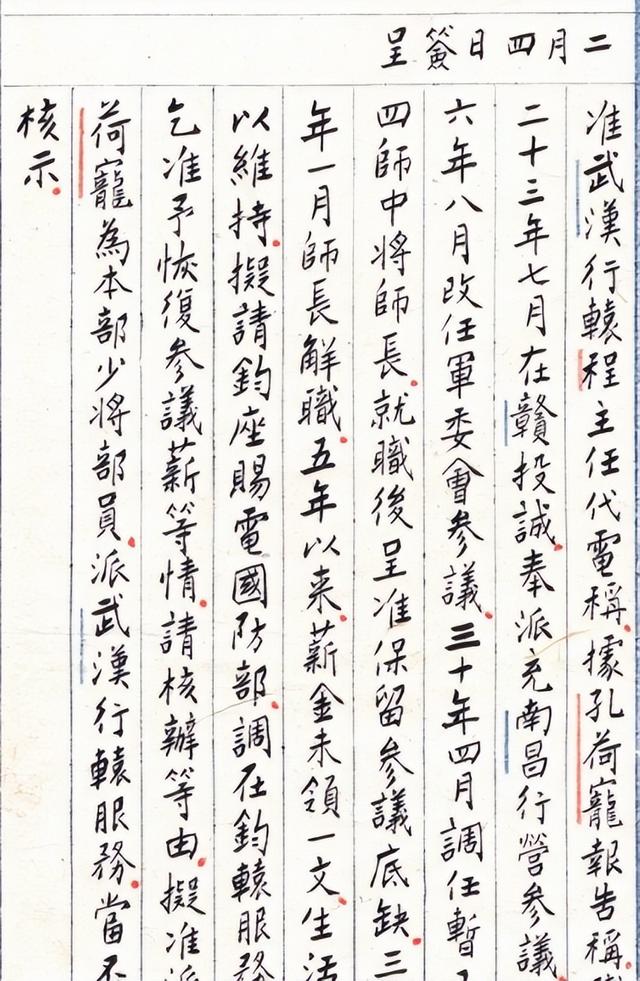 二月四日簽呈
准武漢行轅程主任代電稱據孔荷寵報告稱
二十三年七月在贛投誠奉派充南昌行營參議
六年八月改任軍委會參議三十年四月調任暫
四師中將師長就職後呈准保留參議底缺三
年一月師長解職五年以来薪金未領一文生活
以維持擬請鈞座賜電國防部調在鈞轅服務
乞准予恢復參議薪等情請核辦等由擬准派
荷寵為本部少將部員派武漢行轅服務當不
核示